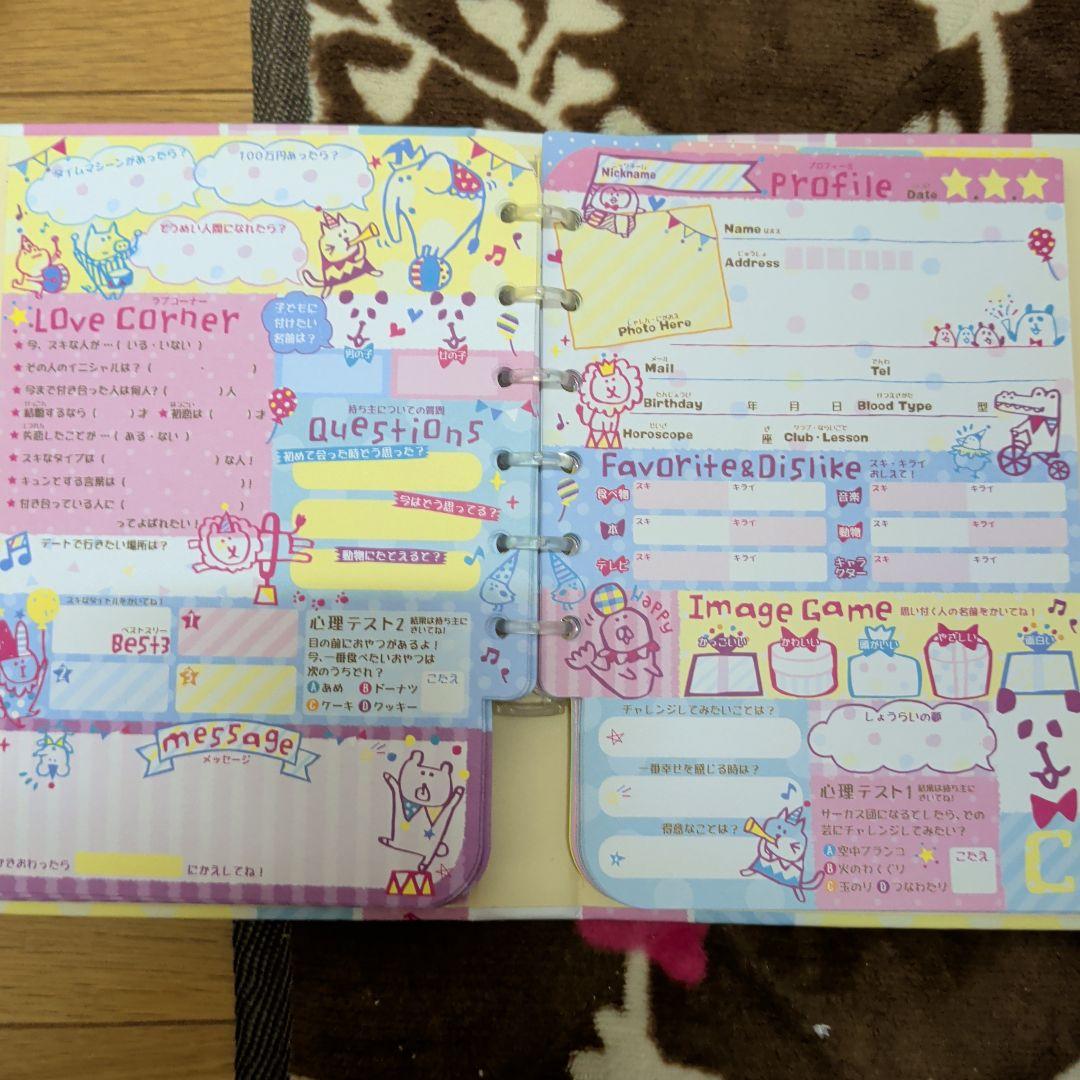 タイムマシーンがあったら?
100万円あったら?
とうめい人間になれたら?
ラブコーナー
Love Corner
★今、スキな人が…( いる・いない )
★その人のイニシャルは?( ・ )
★今まで付き合った人は何人?( )人
★結婚するなら( )才 ★初恋は( )才
★失恋したことが…( ある・ない )
★スキなタイプは( )な人!
★キュンとする言葉は( )!
★付き合っている人に( )
ってよばれたい!
デートで行きたい場所は?
子どもに
付けたい
名前は?
男の子
女の子
持ち主についての質問
Questions
初めて会った時どう思った?
今はどう思ってる?
動物にたとえると?
スキなタイトルをかいてね!
ベストスリー
Best3
1
2
3
心理テスト2 結果は持ち主に
きいてね!
目の前におやつがあるよ!
今、一番食べたいおやつは
次のうちどれ?
Aあめ Bドーナツ
Cケーキ Dクッキー
こたえ
message
メッセージ
かきおわったら にかえしてね!
Nickname
プロフィール
Profile
Date
Name
じゅうしょ
Address
しゃしん・にがおえ
Photo Here
メール
Mail
でんわ
Tel
たんじょうび
Birthday 年 月 日
けつえきがた
Blood Type 型
せいざ
Horoscope 座
クラブ・ならいごと
Club・Lesson
Favorite&Dislike スキ・キライ
おしえて!
食べ物 スキ キライ
音楽 スキ キライ
本 スキ キライ
動物 スキ キライ
テレビ スキ キライ
キャラクター スキ キライ
Happy
Image Game 思い付く人の名前をかいてね!
かっこいい
かわいい
頭がいい
やさしい
面白い
チャレンジしてみたいことは?
一番幸せを感じる時は?
得意なことは?
しょうらいの夢
心理テスト1 結果は持ち主に
きいてね!
サーカス団になるとしたら、どの
芸にチャレンジしてみたい?
A空中ブランコ
B火のわくぐり
C玉のり Dつなわたり
こたえ
C